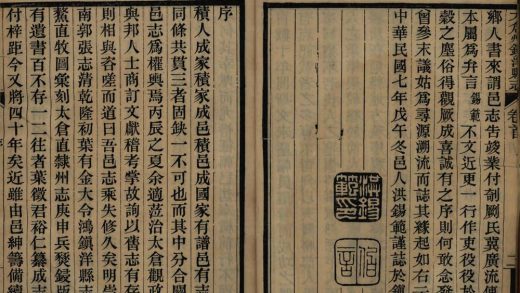 卷首
鄉人書來謂邑志告竣業付剞劂氏冀廣流
本屬為弁言錫範不文近更一行作吏役役於
轂之塵俗得觀厥成喜誠有之序則何敢念
曾參末議姑為尋源溯流而誌其緣起如右云
中華民國七年戊午冬邑人洪錫範謹誌於
洪錫範印
伯言
序
積人成家積家成邑積邑成國家有譜邑有志
同條共貫三者固缺一不可也而其中分合關
邑志為權輿焉丙辰之夏余適蒞治太倉觀政
與邦人士商訂文獻稽考掌故詢以舊志有存
皆咨嗟而道曰吾邑志乘失修久矣明
南郭張志清乾隆初葉有金大令鴻鎮洋縣志
鰲直牧圖彙刻太倉直隸州志庚申兵燹版
有遺書百不存一二往者葉徵君裕仁纂成志
付梓距今又將四十年矣近雖由邑紳籌備續